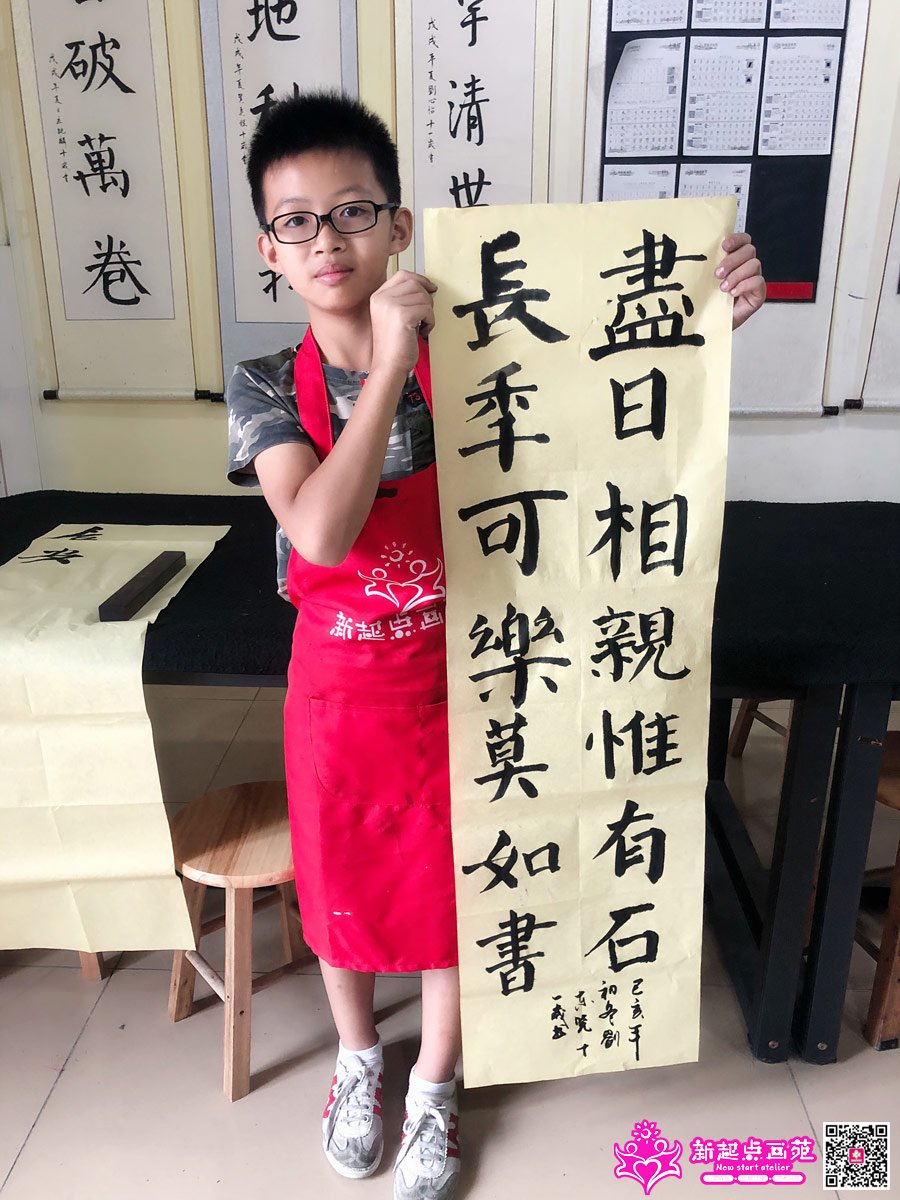 破萬卷
地
清世
戊戌年夏劉心怡十一歲書
盡日相親惟有石
長秊可樂莫如書
己亥年
初冬劉
十
一歲書
新起点画
新起点画苑
New start atelier